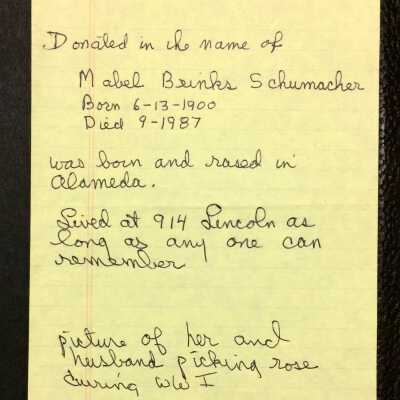 Donated in the name of
Mabel Brinks Schumacher
Born 6-13-1900
Died 9-1987
was born and rased in
Alameda.
Lived at 914 Lincoln as
long as any one can
remember
picture of her and
husband picking rose
during WW I